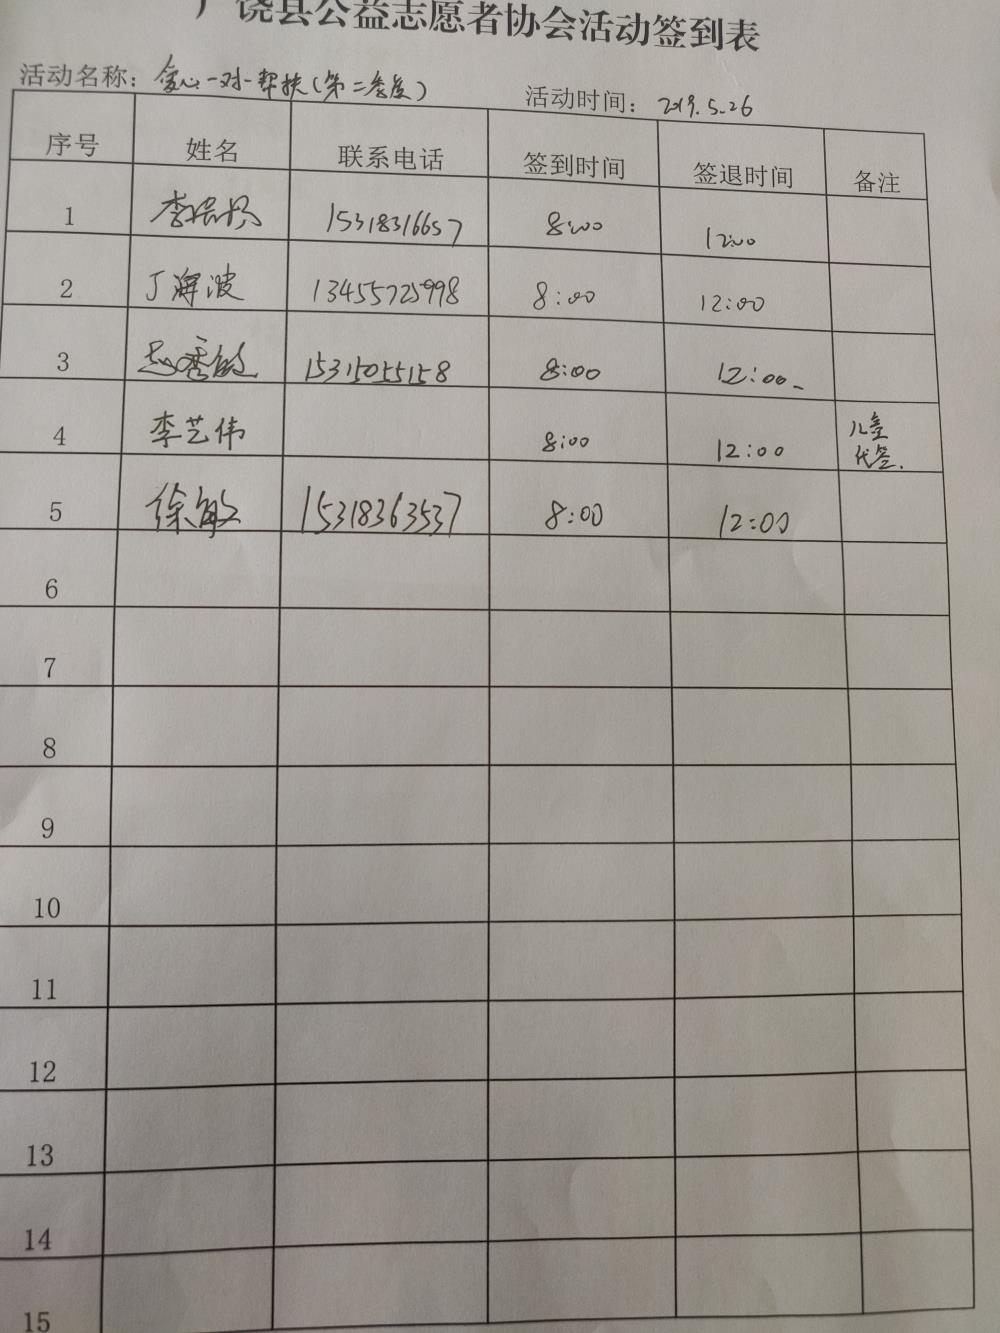 广饶县公益志愿者协会活动签到表
活动名称：爱心一对一帮扶(第二季度) 活动时间：2019.5.26
序号 姓名 联系电话 签到时间 签退时间 备注
1 李 15318316657 8:00 12:00
2 丁海波 13455725998 8:00 12:00
3 秀敏 15315055158 8:00 12:00
4 李艺伟 8:00 12:00 儿童
代签.
5 徐敏 15318363537 8:00 12:00
6
7
8
9
10
11
12
13
14
15